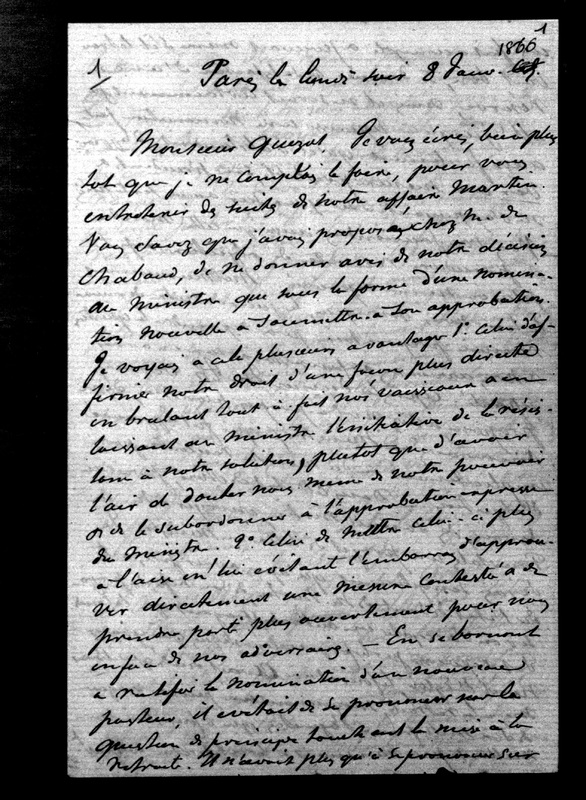 1
1866
1/ Paris le lundi soir 8 Janv.
Monsieur Guizot, Je vous écris, bien plus
tot que je ne comptais le faire, pour vous
entretenir des suites de notre affaire Martin.
Vous savez que j'avais proposé chez M. de
Chabaud, de ne donner avis de notre décision
au ministre que sous la forme d'une nomina-
tion nouvelle à soumettre à son approbation.
Je voyais a cela plusieurs avantages 1o. Celui d'af-
firmer notre droit d'une façon plus directe
en brulant tout à fait nos vaisseaux et en
laissant au ministre l'initiative de la résis-
tance à notre solution, plutot que d'avoir
l'air de douter nous meme de notre pouvoir
et de le subordonner à l'approbation expresse
du Ministre. 2o Celui de mettre celui-ci plus
à l'aise en lui évitant l'embarras d'approu-
ver directement une mesure contestée & de
prendre parti plus ouvertement pour nous
en face de nos adversaires. — En se bornant
a ratifier la nomination d'un nouveau
pasteur, il evitait de se prononcer sur la
question de principe touchant la mise à la
retraite. Il n'avait plus qu'à se prononcer sur